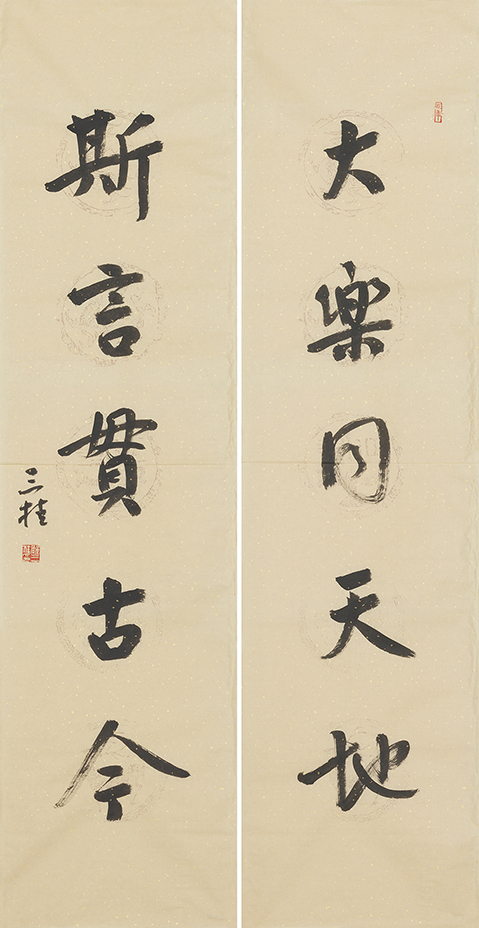 大樂同天地
斯言貫古今
三桂